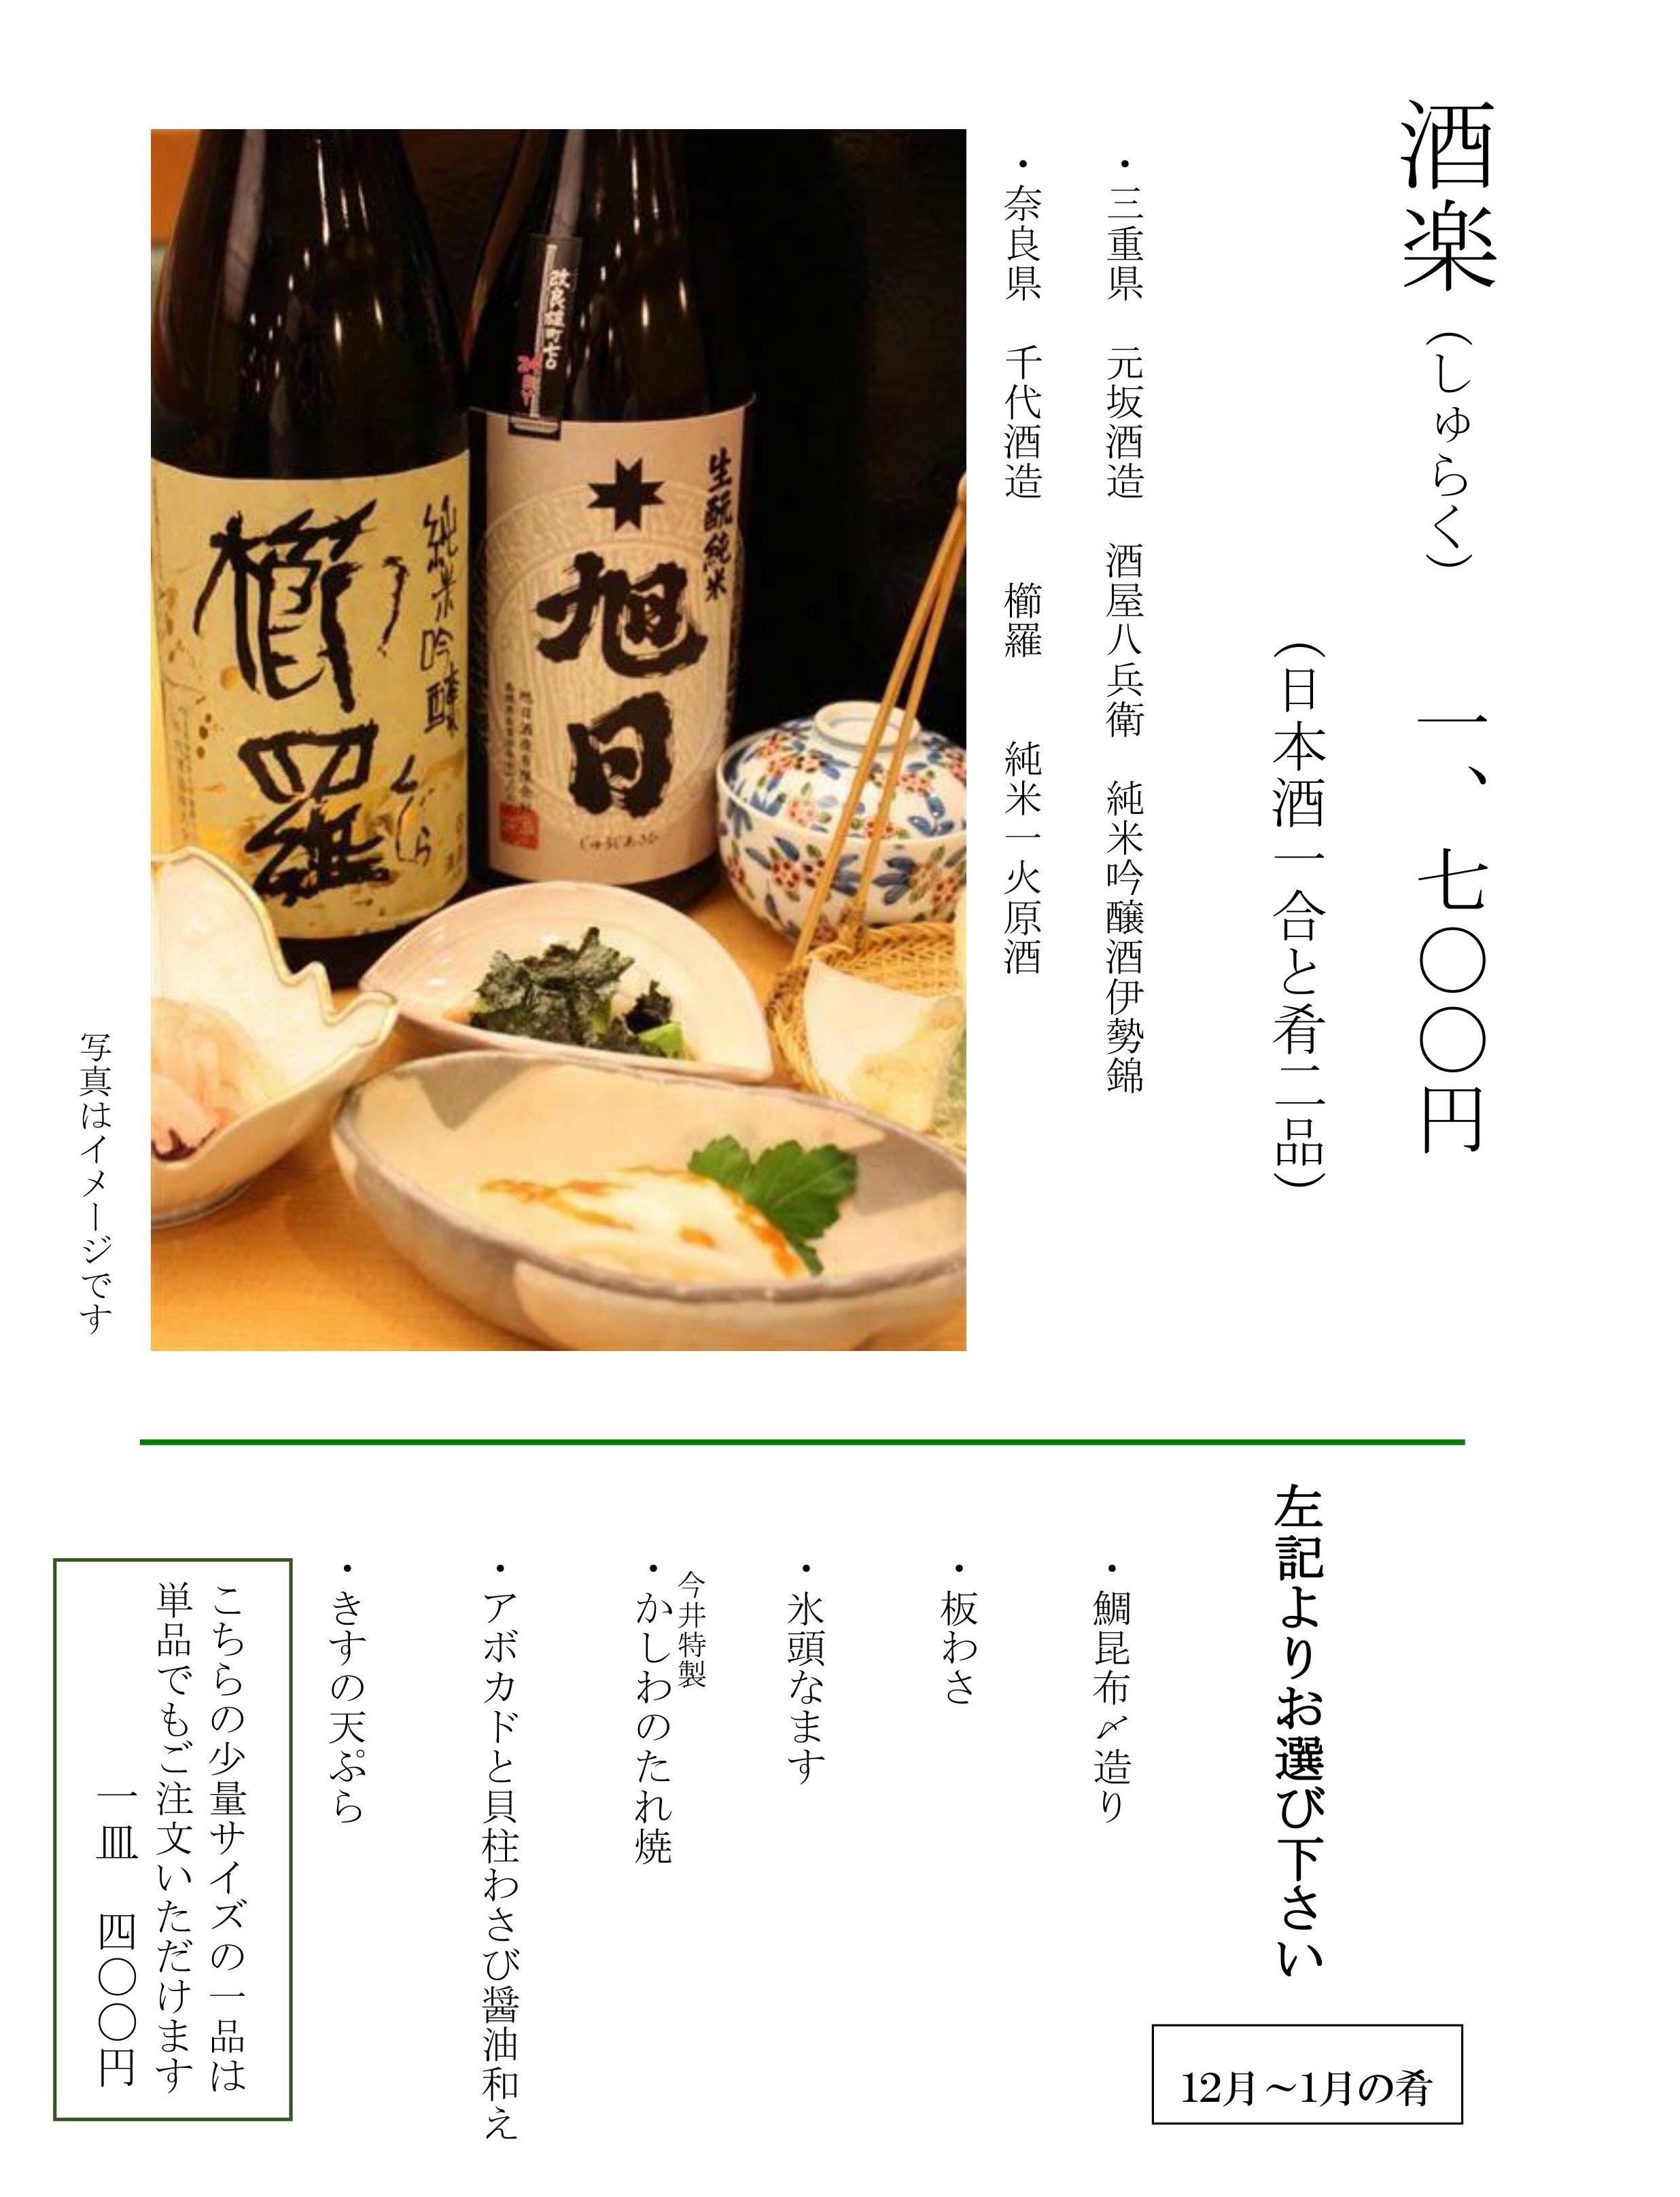 酒楽（しゅらく）　一、七〇〇円
（日本酒一合と肴二品）
・三重県　元坂酒造　酒屋八兵衛　純米吟醸酒伊勢錦
・奈良県　千代酒造　櫛羅　純米一火原酒
生酛純米
旭日
じゅうじあさひ
改良雄町
純米吟醸
櫛羅
くじら
写真はイメージです
左記よりお選び下さい
12月～1月の肴
・鯛昆布〆造り
・板わさ
・氷頭なます
今井特製
・かしわのたれ焼
・アボカドと貝柱わさび醤油和え
・きすの天ぷら
こちらの少量サイズの一品は
単品でもご注文いただけます
一皿　四〇〇円